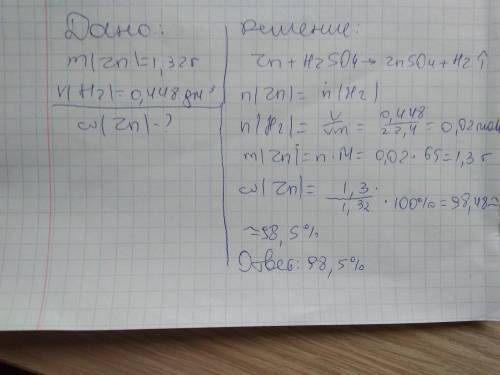 Дано:
m(Zn)=1,32г
V(H2)=0,448дм³
ω(Zn)-?
Решение:
Zn+H2SO4→ZnSO4+H2↑
n(Zn)=n(H2)
n(H2)=V/Vm=0,448/22,4=0,02моль
m(Zn)=n·M=0,02·65=1,3г
ω(Zn)=1,3/1,32·100%=98,48≈
≈98,5%
Ответ: 98,5%